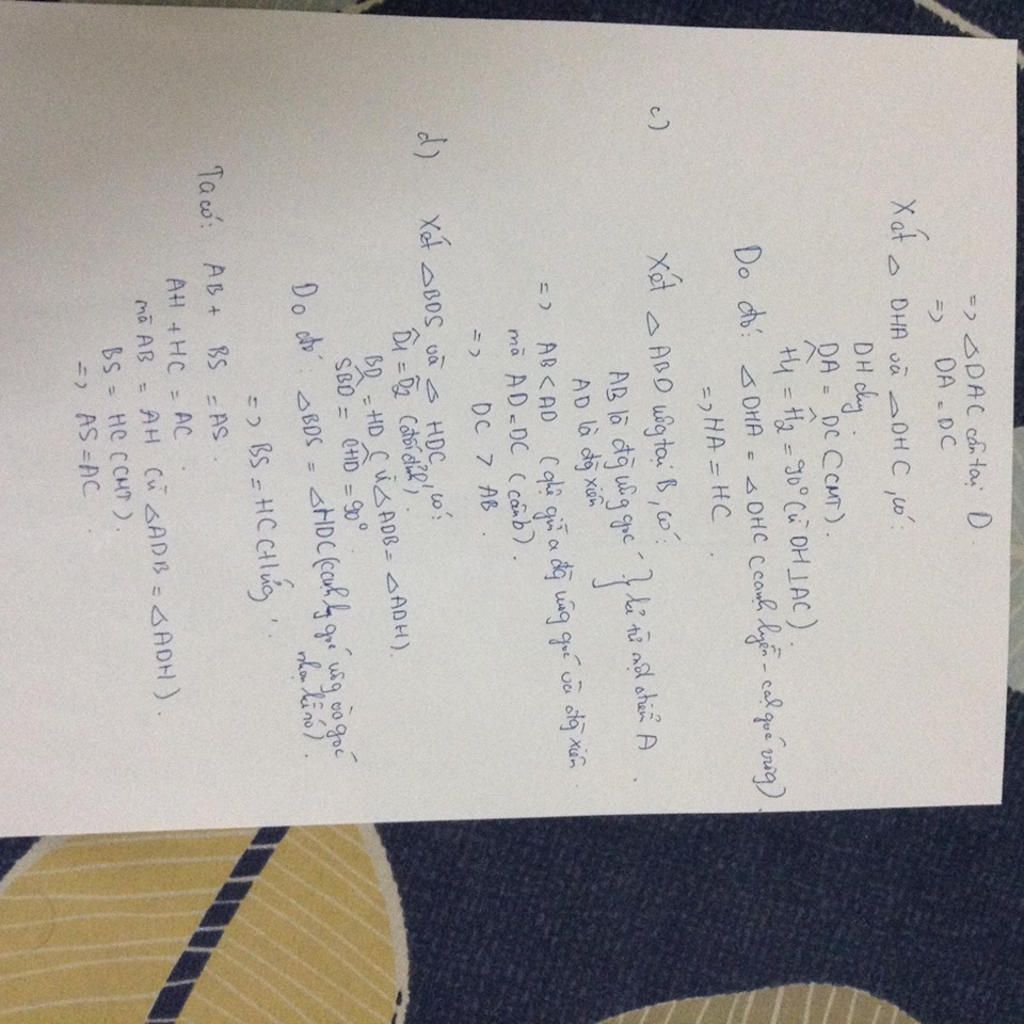 => △DAC cân tại D
=> DA = DC
Xét △ DHA và △DHC, có:
DH chg
DA = DC (CMT).
Ĥ1 = Ĥ2 = 90° (vì DH⊥AC).
Do đó: △DHA = △DHC (cạnh huyền - cạh góc vuôg)
=> HA = HC.
c) Xét △ABD vuôg tại B, có:
AB là đg vuôg góc
AD là đg xiên } kẻ từ một điểm A.
=> AB < AD (qhệ giữa đg vuôg góc và đg xiên
mà AD = DC (câu b).
=> DC > AB.
d) Xét △BDS và △ HDC, có:
D̂1 = D̂2 (đối đỉnh),
BD = HD (vì △ADB = △ADH).
SBD = CHD = 90°
Do đó: △BDS = △HDC (cạnh góc vuôg và góc
nhọn kề nó).
=> BS = HC (2 t/ứng).
Ta có: AB + BS = AS.
AH + HC = AC.
mà AB = AH (vì △ADB = △ADH).
BS = HC (CMT).
=> AS = AC.